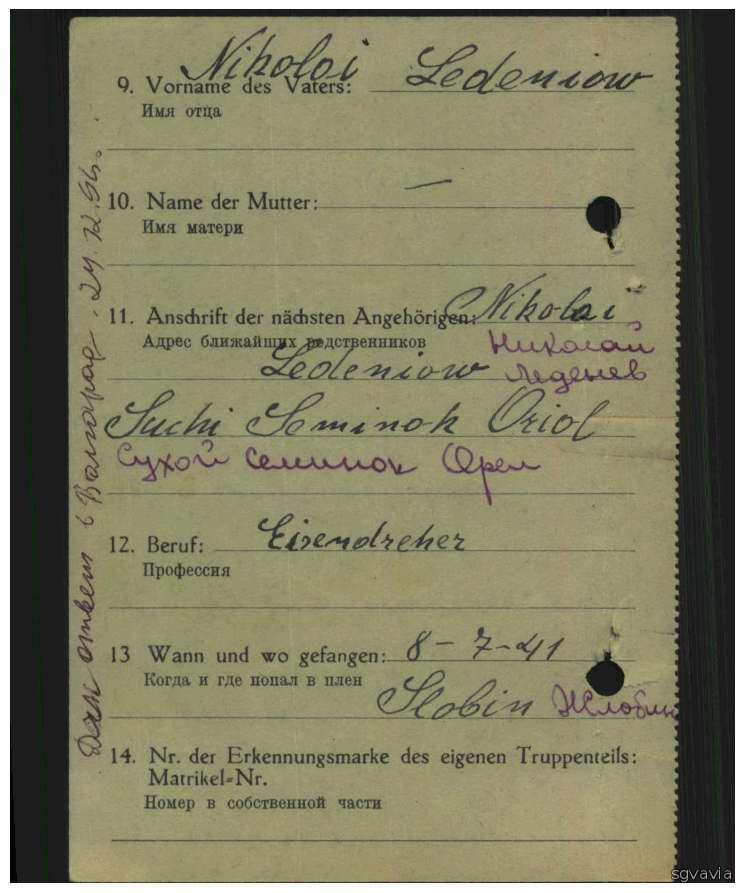 Nikoloi Ledeniow
9. Vorname des Vaters:
Имя отца
10. Name der Mutter: —
Имя матери
11. Anschrift der nächsten Angehörigen: Nikolai
Адрес ближайших родственников Николай
Ledeniow Леденев
Suchi Seminok Oriol
Сухой Семинок Орел
12. Beruf: Eisendreher
Профессия
13 Wann und wo gefangen: 8-7-41
Когда и где попал в плен
Slobin Жлобин
14. Nr. der Erkennungsmarke des eigenen Truppenteils:
Matrikel=Nr.
Номер в собственной части
Дан ответ в Волгоград. 24.12.66.
sgvavia